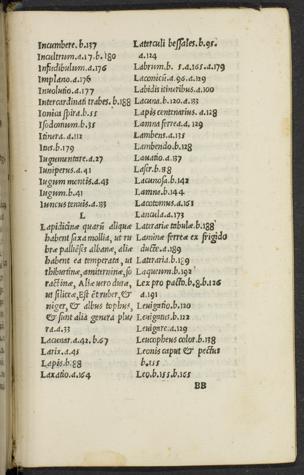 Incumbere.b.137
Incultrum.a.17.b.180
Infudibulum.a.176
Implano.a.176
Inuolutio.a.177
Intercardinati trabes.b.188
Ionica spira.b.55
Isodonium.b.35
Itinera.a.112
Ius.b.179
Iugumentare.a.27
Iuniperus.a.41
Iugum mentis.a.43
Iugum.b.41
Iuncus tenuis.a.133
L
Lapidicinæ quarũ aliquæ
habent saxa mollia, ut ru
bræ palliẽses albanæ, aliæ
habent ea temperata, ut
thiburtinæ, amiterninæ, so
ractinæ, Aliæ uero duræ,
ut siliceæ, Est et ruber, &
niger, & albus tophus,
& sunt alia genera plu
ra.a.33
Lacunar.a.42.b.67
Larix.a.45
Lapis.b.88
Laxatio.a.164
Laterculi bessales.b.95.
a.124
Labrum.b. 5.a.165.a.179
Laconicũ.a.96.a.129
Labidis itineribus.a.100
Lacuna.b.120.a.133
Lapis centenarius.a.128
Lamna ferrea.a.129
Lambens.a.135
Lambendo.b.128
Lauatio.a.137
Laser.b.138
Lacunosa.b.142
Lamna.b.144
Lacotomus.a.161
Lancula.a.173
Laterariæ tabulæ.b.188
Laminæ ferreæ ex frigido
ductæ.a.189
Lateraria.b.189
Laqueum.b.192
Lex pro pacto.b.8.b.126
a.191
Leuigatio.b.120
Leuigatus.b.122
Leuigare.a.129
Leucopheus color.b.138
Leonis caput & pectus
b.155
Leo.b.155.b.165
BB